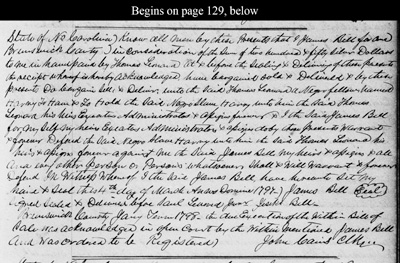 Begins on page 129, below
State of No Carolina) Know all men by these Presents that I James Bell for and
Brunswick County ) in consideration of the sum of two hundred & fifty Silver Dollars
to me in hand paid by Thomas Leonard at & before the sealing & Delivering of these presents
the receipt whereof is hereby acknowledged have bargained sold & Delivered & by these
presents Do bargain sell & Deliver unto the said Thomas Leonard a Negro fellow named
Harvey To Have & To Hold the said Negro Slave Harvey unto him the said Thomas
Leonard his Executors Administrators & assigns forever & I the said James Bell
for my Self my heirs Executors Administrators & assigns do by these Presents Warrant
& forever Defend the said Negro Slave Harvey unto him the said Thomas Leonard his
heirs & assigns forever against me the said James Bell my heirs & assigns & all
and every other Person or Persons whatsoever Shall & Will Warrant & forever
Defend In Witness Whereof I the said James Bell have hereunto set my
hand & Seal this 4th day of March Anno Domini 1797. James Bell Seal
Signed Sealed & Delivered before Saml Leonard Jos Bell
Brunswick County Term 1798. the Execution of the Within Bill of
Sale was acknowledged in open Court by the Within mentioned James Bell
and was ordered to be Registered) John Cains Clk